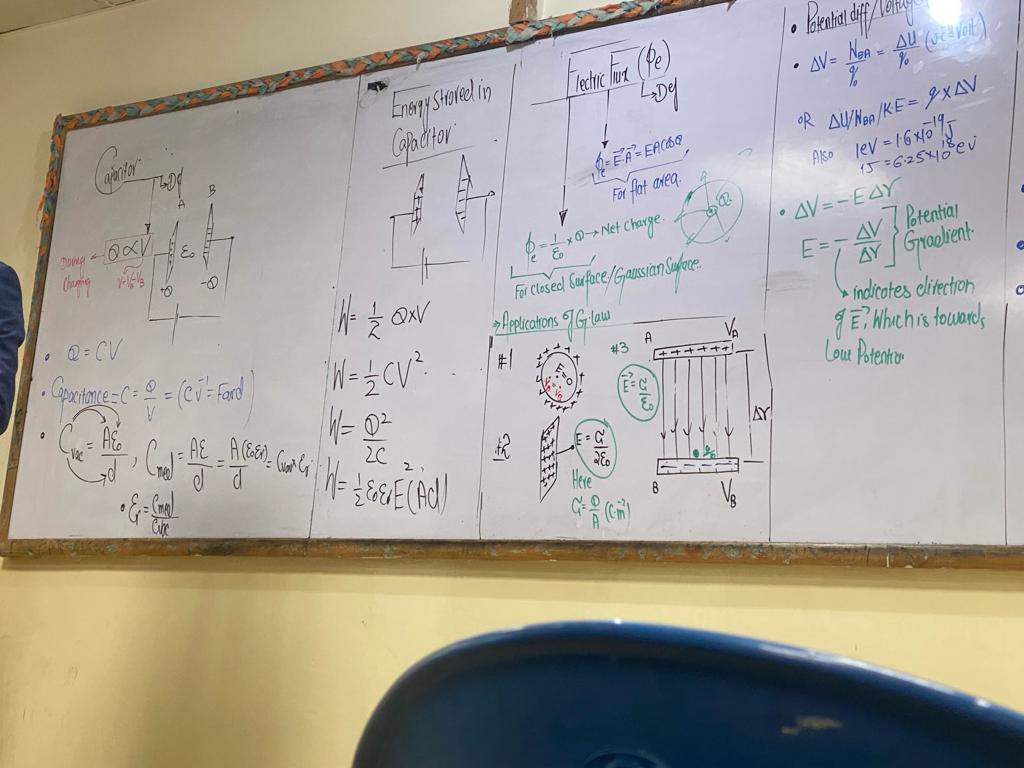 Capacitor
→Def
A
B
Q ∝ V
During
Charging
V=VA-VB
ε₀
+Q
-Q
• Q = CV
• Capacitance = C = Q/V = (CV⁻¹ = Farad)
• Cvac = Aε₀/d , Cmed = Aε/d = A(ε₀εr)/d = Cvac×εr
• εr = Cmed/Cvac
Energy Stored in
Capacitor
W = 1/2 Q×V
W = 1/2 CV²
W = Q²/2C
W = 1/2 ε₀εrE²(Ad)
Electric Flux (Φe)
→Def
Φe = E.A = EAcosθ
For flat area.
Φe = 1/ε₀ × Q → Net Charge.
Q
For Closed Surface/Gaussian Surface.
⇒ Applications of G.law
#1
E=0
#2
E = σ/2ε₀
Here
σ = Q/A (C·m⁻²)
#3
E = σ/ε₀
A
VA
Δr
B
VB
• Potential diff/Voltage
• ΔV = WBA/q₀ = ΔU/q₀ (JC⁻¹=Volt)
OR ΔU/WBA/K·E = q × ΔV
Also 1eV = 1.6×10⁻¹⁹J
1J = 6.25×10¹⁸ eV
• ΔV = -EΔr
E = - ΔV/Δr ] Potential
Gradient
indicates direction
of E, Which is towards
Low Potential